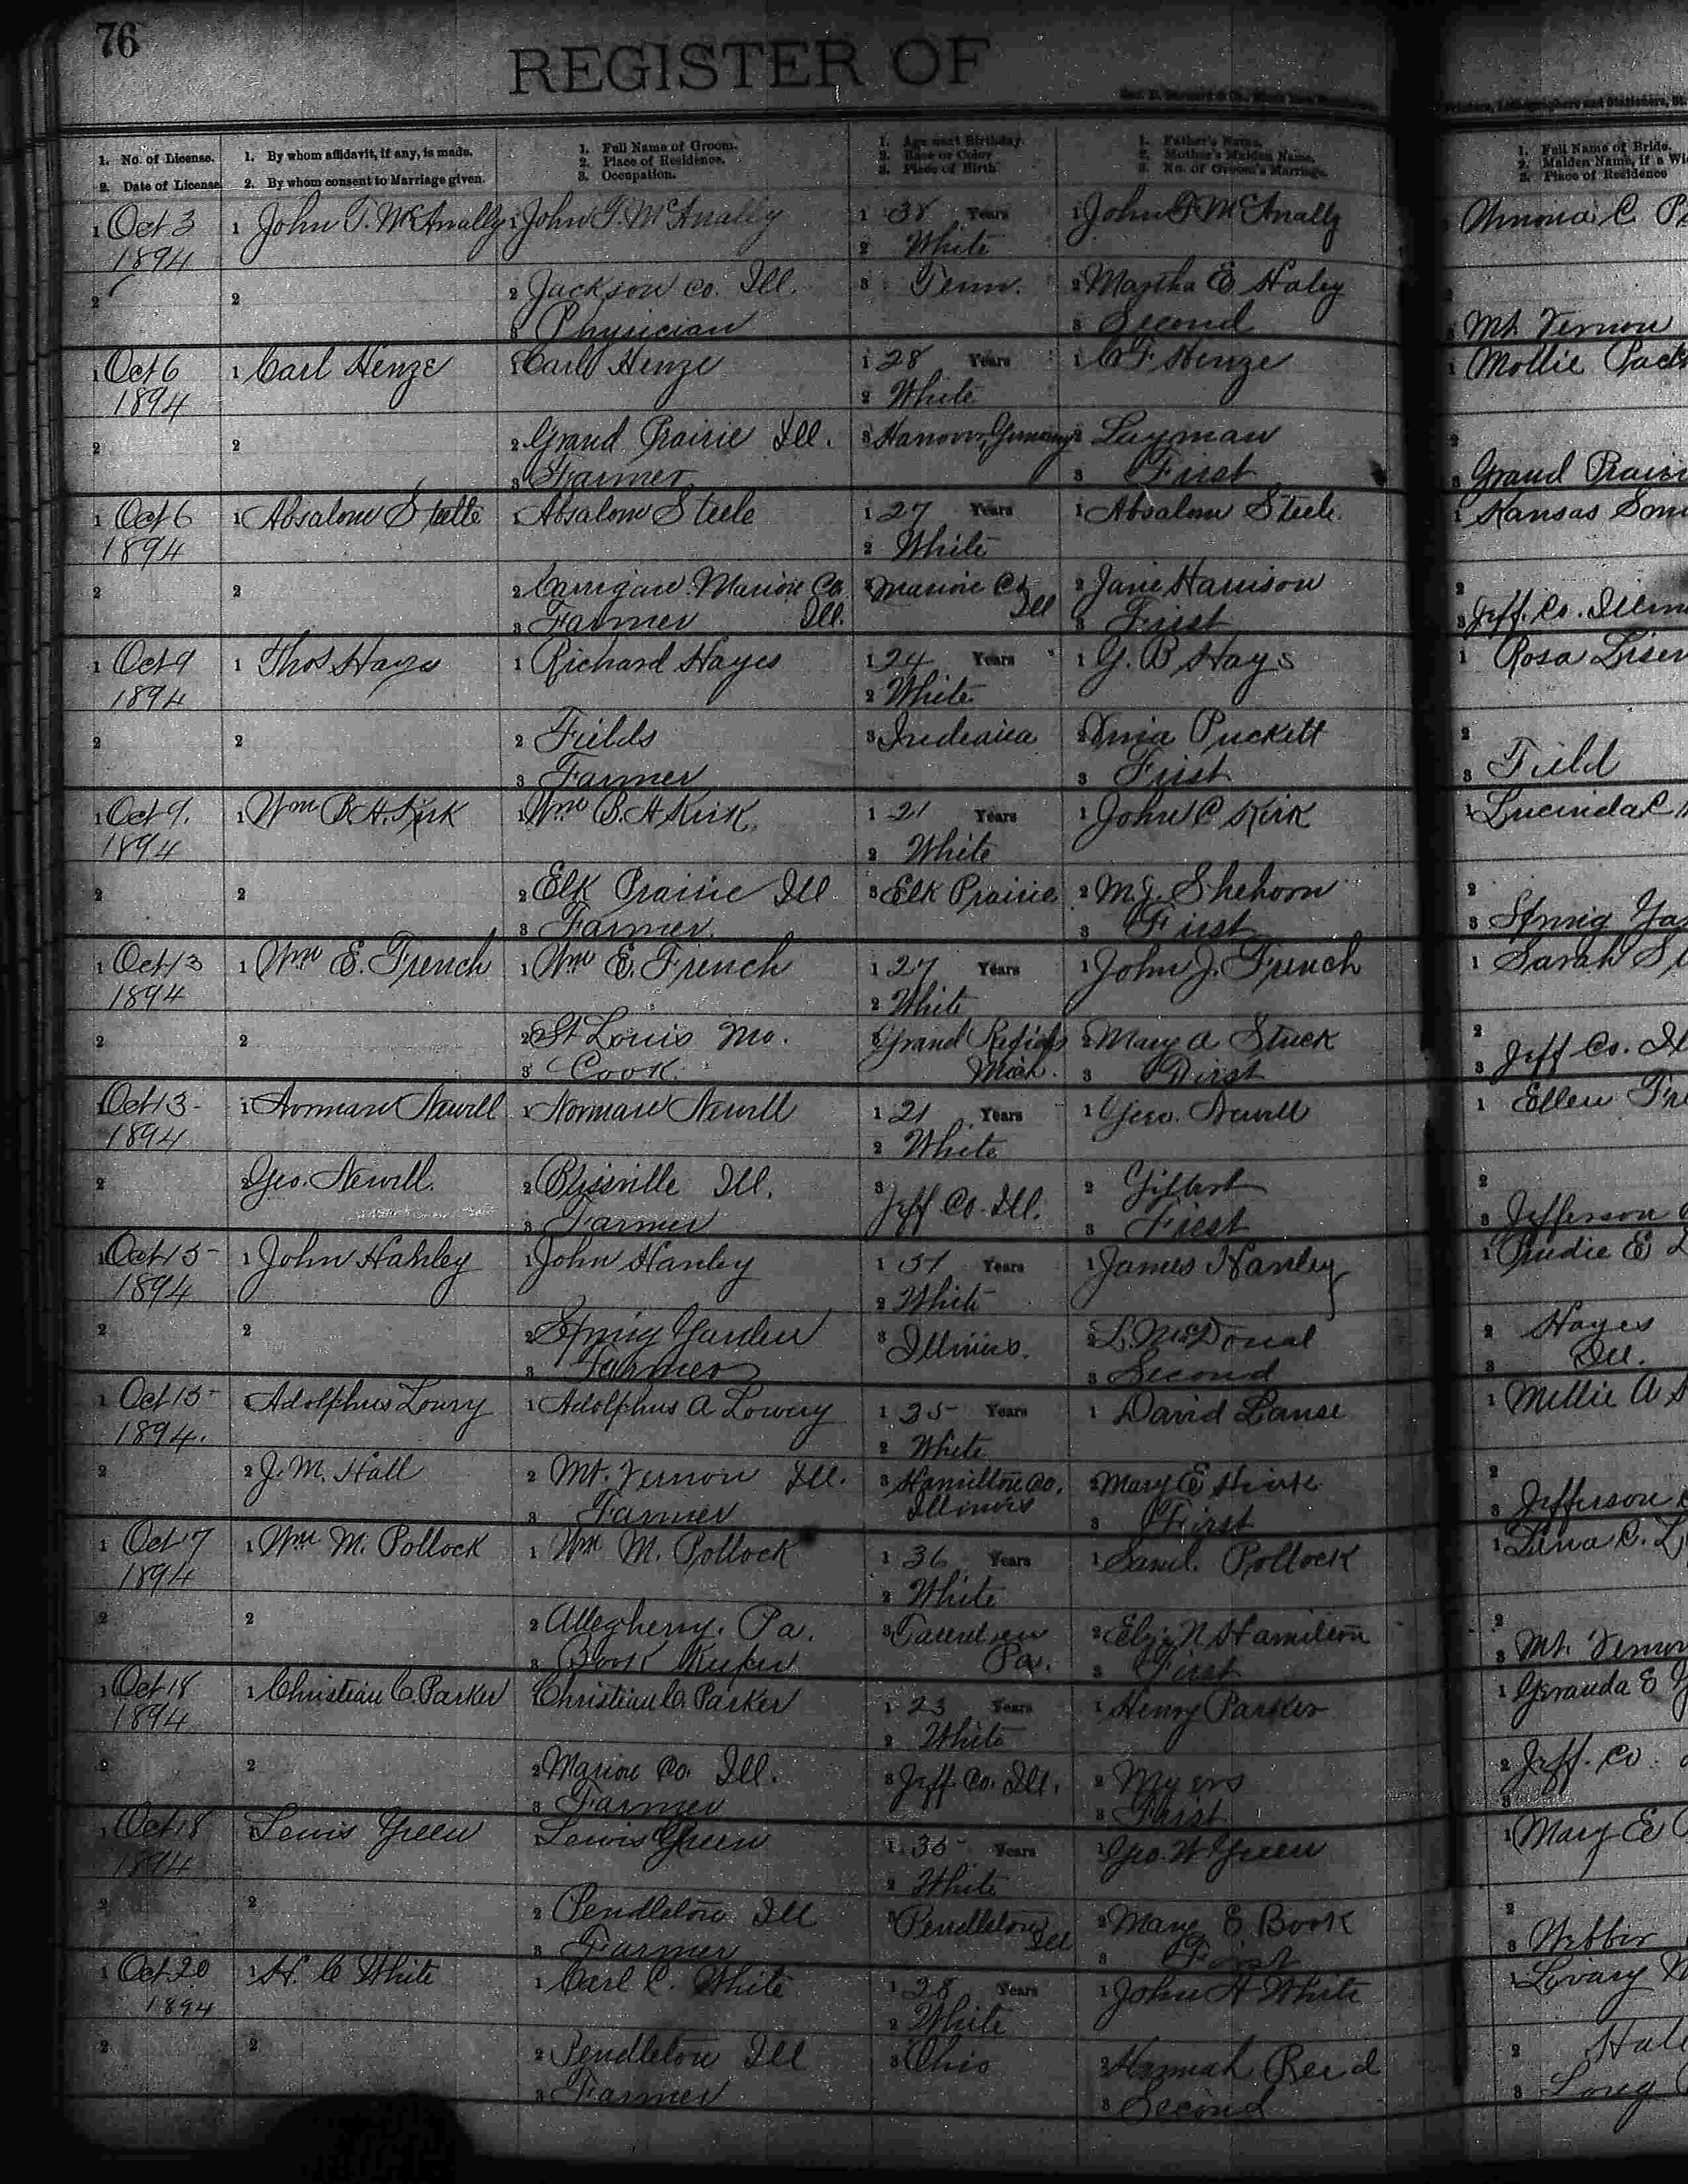 76
REGISTER OF
1. No. of License.
2. Date of License.
1. By whom affidavit, if any, is made.
2. By whom consent to Marriage given.
1. Full Name of Groom.
2. Place of Residence.
3. Occupation.
1. Age next Birthday.
2. Race or Color
3. Place of Birth
1. Father's Name.
2. Mother's Maiden Name.
3. No. of Groom's Marriage.
1. Full Name of Bride.
2. Maiden Name, if a Wi
3. Place of Residence
1 Oct 3 1 John T. McAnally 1 John T. McAnally 1 38 Years 1 John McAnally
1894 2 White
2 2 2 Jackson Co. Ill. 3 Tenn. 2 Martha E Haley
3 Physician 3 Second 3 Mt. Vernon
1 Oct 6 1 Carl Henze 1 Carl Henze 1 28 Years 1 C F Henze 1 Mollie
1894 2 White
2 2 2 Grand Prairie Ill. 3 Hanover, Germany 2 Layman 2
3 Farmer 3 First 3 Grand Prairi
1 Oct 6 1 Absalom Steele 1 Absalom Steele 1 27 Years 1 Absalom Steele 1 Kansas
1894 2 White
2 2 2 Marion Co 3 Marion Co 2 Jane Harrison 2
3 Farmer Ill. Ill 3 First 3 Jeff. Co. Illin
1 Oct 9 1 Thos Hays 1 Richard Hayes 1 24 Years 1 G. B Hays 1 Rosa
1894 2 White
2 2 2 Fields 3 2 Puckett 2
3 Farmer 3 First 3 Field
1 Oct 9. 1 Wm B. A. Kirk 1 Wm B. A Kirk 1 21 Years 1 John C Kirk 1 Lucinda C
1894 2 White
2 2 2 Elk Prairie Ill 3 Elk Prairie 2 M. J. Shehorn 2
3 Farmer. 3 First 3 Spring Gar
1 Oct 13 1 Wm E. French 1 Wm E. French 1 27 Years 1 John J. French 1 Sarah
1894 2 White
2 2 2 St Louis Mo. 3 Grand Rapids 2 Mary A Stuck 2
3 Cook. Mich. 3 First 3 Jeff Co. Il
1 Oct 13- 1 Norman Newell 1 Norman Newell 1 21 Years 1 Geo. Newell 1 Ellen
1894 2 White
2 2 Geo. Newell. 2 Blissville Ill. 3 Jeff Co. Ill. 2 2
3 Farmer 3 First 3 Jefferson
1 Oct 15- 1 John Hanley 1 John Hanley 1 Years 1 James Hanley 1 E
1894 2 White
2 2 2 Spring Garden 3 Illinois. 2 L. McDonal 2 Hayes
3 Farmer 3 Second 3 Ill.
1 Oct 15- Adolphus Lowry 1 Adolphus A Lowery 1 Years 1 David 1 Millie A
1894. 2 White
2 2 J. M. Hall 2 Mt. Vernon Ill. 3 Hamilton Co. 2 Mary E 2
3 Farmer Illinois 3 First 3 Jefferson
1 Oct 17 1 Wm M. Pollock 1 Wm M. Pollock 1 36 Years 1 Saml. Pollock 1 C.
1894 2 White
2 2 2 Allegheny. Pa. 3 2 N Hamilton 2
3 Book Keeper Pa. 3 First 3 Mt. Vernon
1 Oct 18 1 Christian C. Parker Christian C. Parker 1 23 Years 1 Henry Parker 1 E
1894 2 White
2 2 2 Marion Co. Ill. 3 Jeff Co. Ill. 2 Myers 2 Jeff. Co.
3 Farmer 3 First 3
1 Oct 18 Lewis Green Lewis Green 1 Years 1 Geo. W Green 1 Mary E
1894 2 White
2 2 2 Pendleton Ill 3 Pendleton 2 Mary E. Book 2
3 Farmer Ill 3 First 3 Webber
1 Oct 20 1 H. C White 1 Carl C. White 1 28 Years 1 John A White 1
1894 2 White
2 2 2 Pendleton Ill 3 Ohio 2 Hannah Reed 2
3 Farmer 3 Second 3 Long